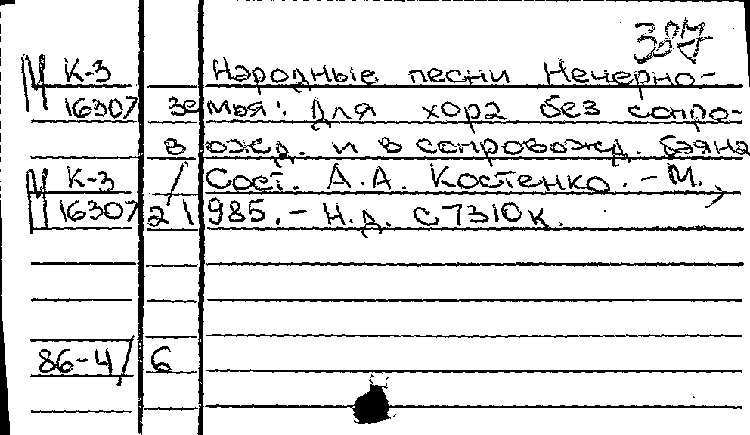 387
М К-3 Народные песни Нечерно-
16307 земья: для хора без сопро-
вожд. и в сопровожд. баяна
М К-3 / Сост. А.А. Костенко. - М.,
16307/2 1985. - Н.Д. С7310к.
86-4/6